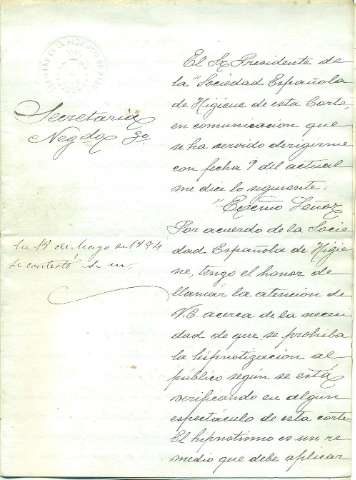 Secretaría
Negdo 3o
En 14 de Mayo de 1894
se contestó
El Sr Presidente de
la "Sociedad Española
de Higiene de esta Corte,
en comunicacion que
se ha servido dirigirme
con fecha 9 del actual
me dice lo siguiente.
"Excmo Señor
Por acuerdo de la Socie
dad Española de Higie
ne, tengo el honor de
llamar la atencion de
VE acerca de la necesi
dad de que se prohiba
la hipnotizacion al
público según se está
verificando en algun
espectáculo de esta corte
El hipnotismo es un re
medio que debe aplicar